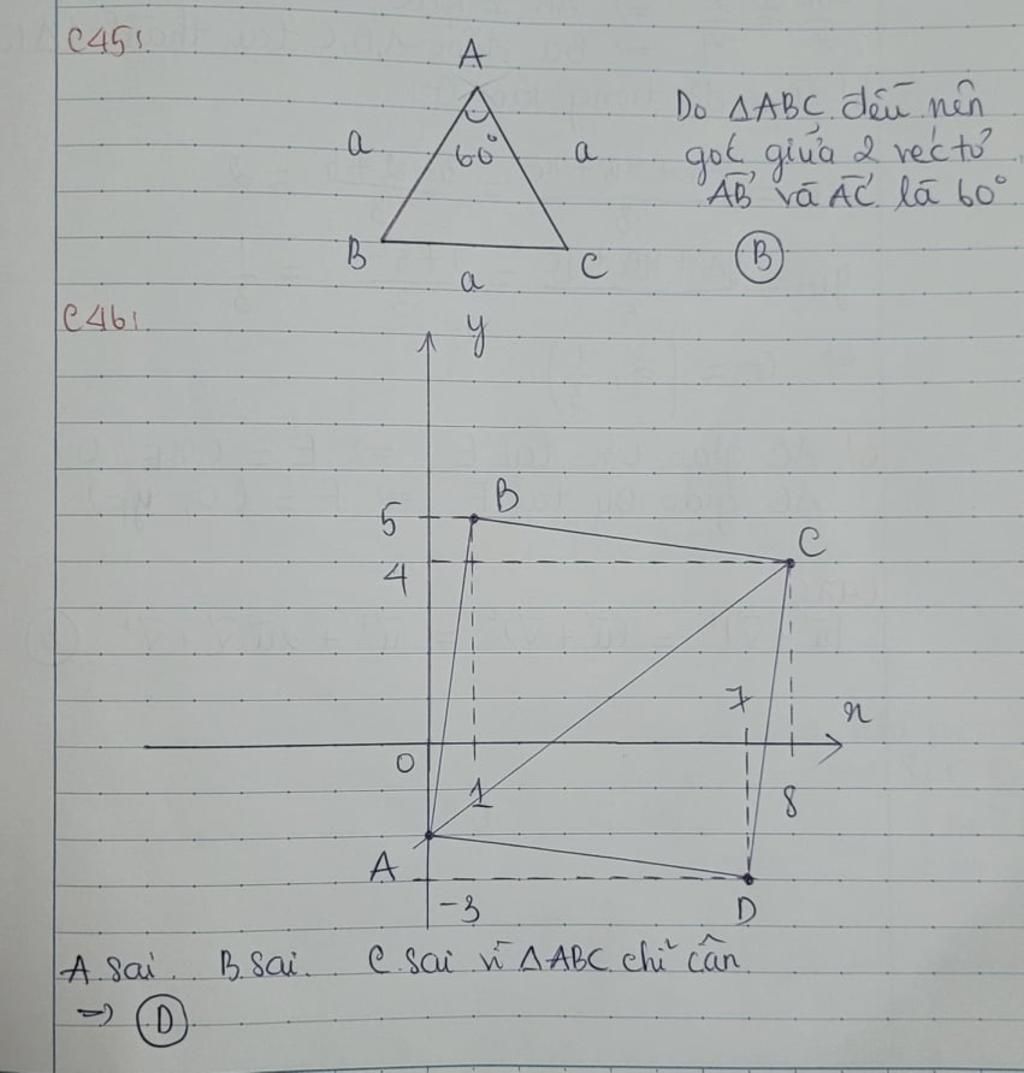 C45:
A
a
60°
a
B
C
a
Do △ABC đều nên
góc giữa 2 vectơ
AB⃗ và AC⃗ là 60°
(B)
C46:
y
5
B
4
C
7
x
0
1
8
A
-3
D
A. sai. B. sai. C. sai vì △ABC chỉ cân
=> (D)